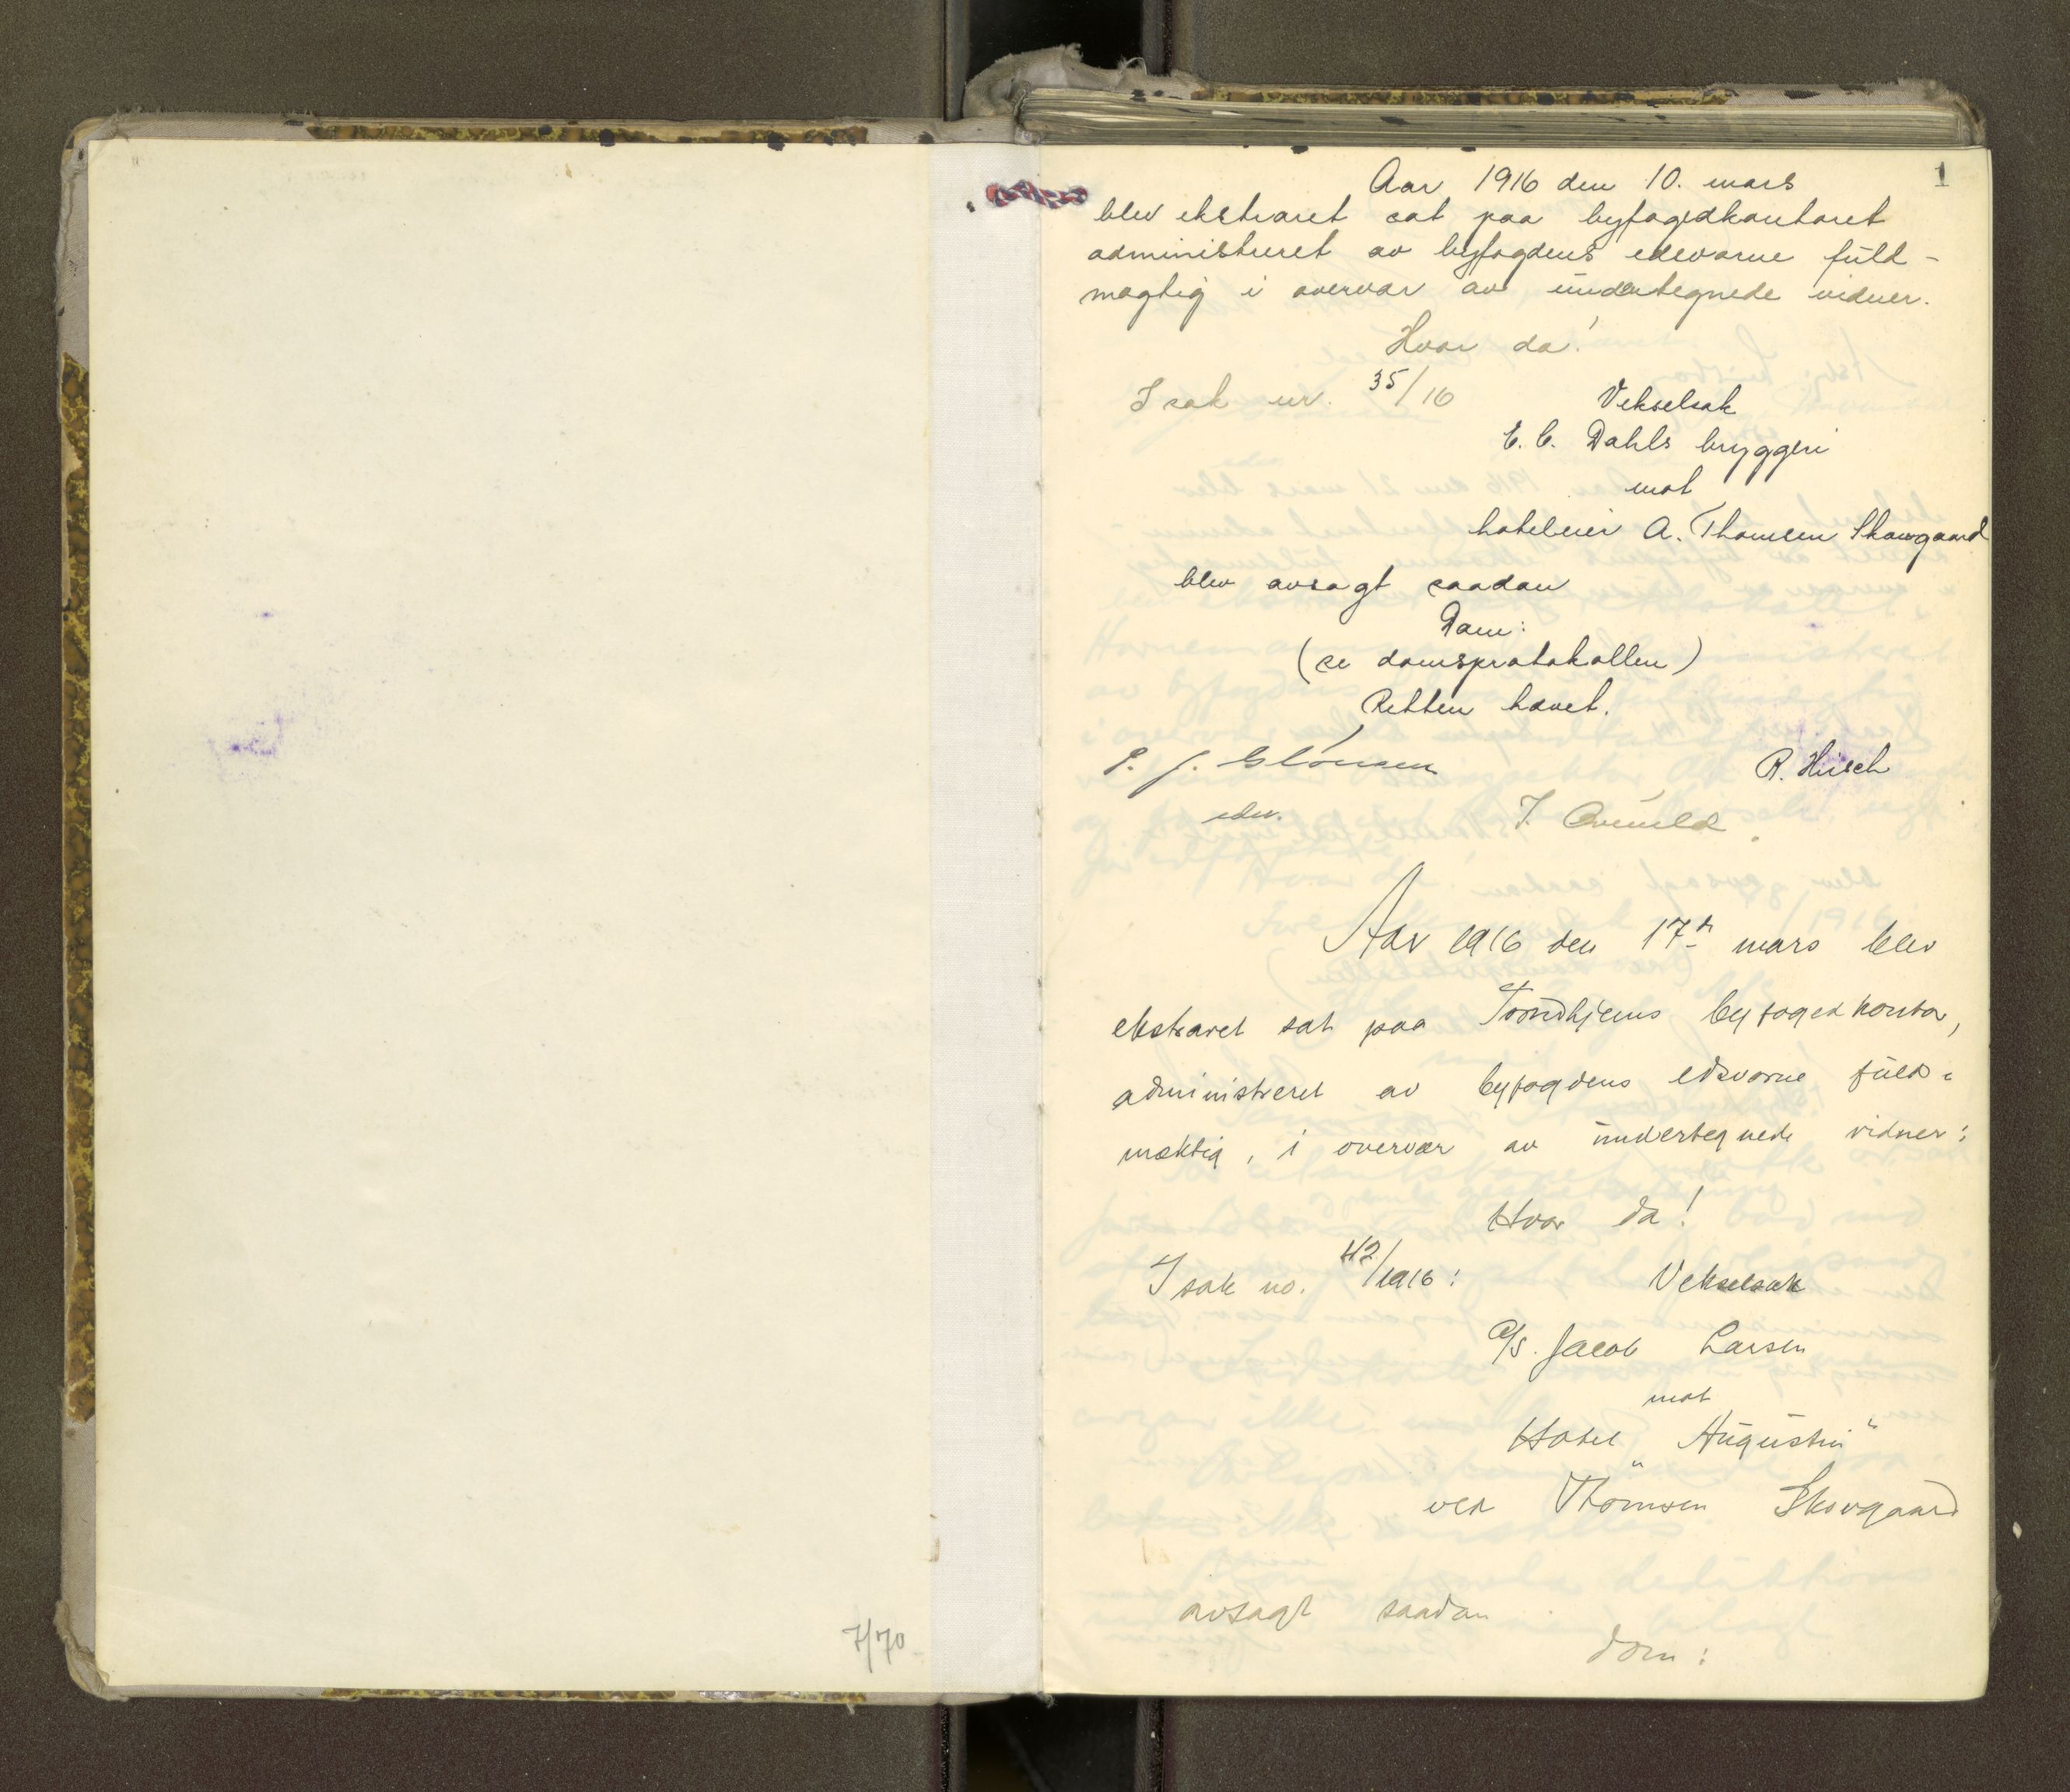 7/70
1
Aar 1916 den 10. mars
blev ekstraret sat paa byfogedkontoret
administreret av byfogdens edsvorne fuld-
mægtig i overvær av undertegnede vidner.
Hvor da!
I sak nr. 35/16
Vekselsak
E. C. Dahls bryggeri
mot
hoteleier A. Thomsen Skovgaard
blev avsagt saadan
Dom:
(se domsprotokollen)
Retten hævet.
R. Hirsch
edsv.
Aar 1916 den 17de mars blev
ekstraret sat paa Trondhjems byfogedkontor,
administreret av byfogdens edsvorne fuld-
mæktig, i overvær av undertegnede vidner:
Hvor da!
I sak no. 42/1916:
Vekselsak
A/S. Jacob Larsen
mot
Hotel "Augustin"
ved Thomsen Skovgaard
avsagt saadan
dom: